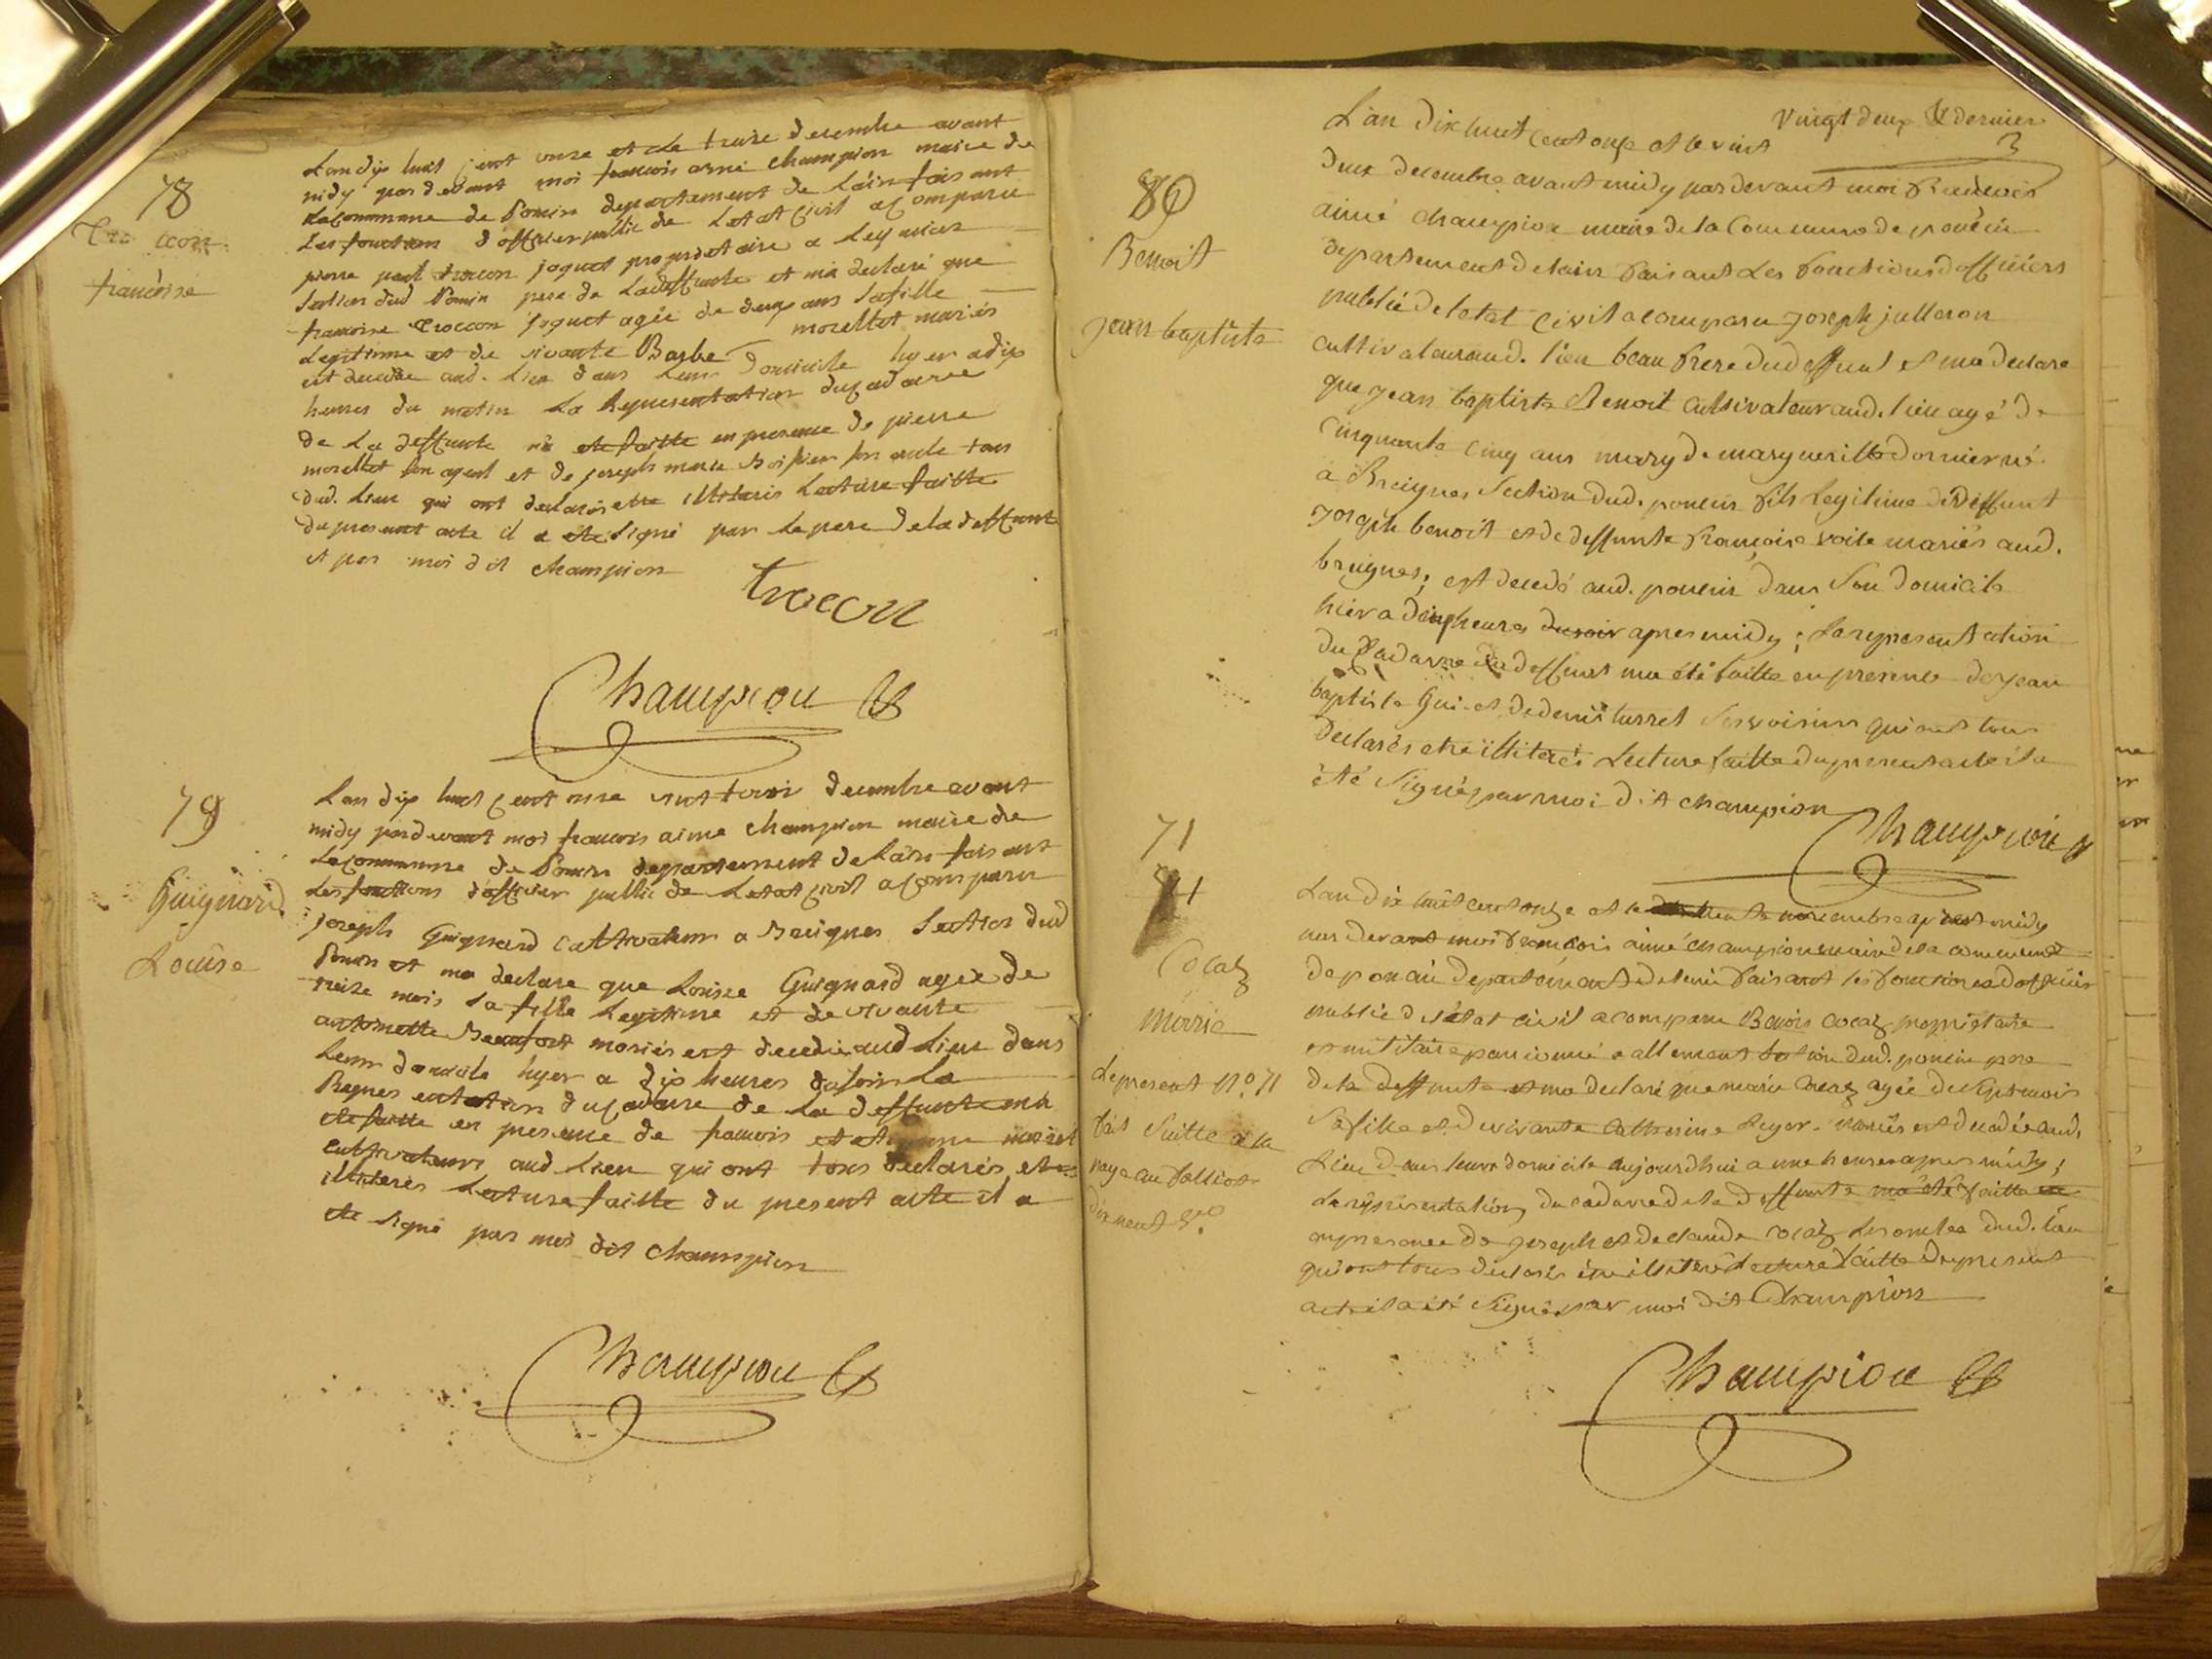 78
Troccon
francoise
Lan dix huit cent onze et Le treize decembre avant
midy par devant moi francois aimé champion maire de
La commune de Poncin departement de L'ain faisant
Les fonctions d'officier public de L'etat civil a comparu
pierre paul troccon joguet proprietaire a Leymiat
Section dud Poncin pere de La deffunte et m'a declaré que
francoise Troccon joguet agée de deux ans Sa fille
Legitime et de vivante Barbe morellet mariés
est decedée aud. Lieu dans Leur domicile hyer a dix
heures du matin La Representation du cadavre
de La deffunte m'a ete faitte en presence de pierre
morellet Son ayeul et de joseph marie Son oncle tous
dud. Lieu qui ont declarés etre illiterés Lecture faitte
du present acte il a été Signé par Le pere de la deffunte
et par moi dit champion
troccon
Champion
79
Guignard
Louise
Lan dix huit cent onze vint trois decembre avant
midy pardevant moi francois aimé champion maire de
La commune de Poncin departement de L'ain faisant
Les fonctions d'officier public de L'etat civil a comparu
joseph Guignard Cultivateur a Breignes Section dud
Poncin et m'a declare que Louise Guignard agée de
treize mois Sa fille Legitime et de vivante
antoinette Beaufort mariés est decedée aud Lieu dans
Leur domicile hyer a dix heures du soir La
Representation du cadavre de La deffunte m'a
ete faitte en presence de francois et etienne
cultivateurs aud Lieu qui ont tous declarés etre
illiterés Lecture faitte du present acte il a
ete signé par moi dit champion
Champion
vingt deux & dernier
80
Benoit
jean baptiste
L'an dix huit cent onze et le vint
deux decembre avant midy pardevant moi francois
aimé champion maire de la Commune de poncin
departement de lain faisant Les fonctions d'officiers
public de letat civil a comparu joseph julleron
cultivateur aud. lieu beau frere dud deffunt et ma declare
que jean baptiste Benoit cultivateur aud. lieu agé de
cinquante cinq ans mary de margueritte dornier né
a Breignes Section dud. poncin fils legitime de deffunt
joseph benoit et de deffunte francoise voile mariés aud.
breignes, est decedé aud. poncin dans Son domicile
hier a deux heures du soir apres midy ; la representation
du Cadavre du deffunt ma été faitte en presence de jean
baptiste Gui et de denis turrel Ses voisins qui ont tous
declarés etre illiterés Lecture faitte du present acte il a
été Signé par moi dit champion
Champion
71
81
Cocaz
marie
Le present N.° 71
fait Suitte a la
page au folliot
dixneuf v.so
Lan dix huit cent onze et le trente novembre apres midy
par devant moi francois aimé champion maire de la commune
de poncin departement de lain faisant les fonctions d'officier
public de l'état civil a comparu Benois cocaz proprietaire
et militaire pancionné a allement Section dud. poncin pere
de la deffunte et ma declaré que marie Cocaz agée de Sept mois
Sa fille et de vivante Catherine Leger mariés est decedée aud.
Lieu dans leur domicile aujourdhui a une heure apres midy ;
La representation du cadavre de la deffunte ma été faitte en
en presence de joseph et de claude cocaz Ses oncles dud. lieu
qui ont tous declarés etre illiteré Lecture faitte du present
acte il a été Signé par moi dit Champion
Champion